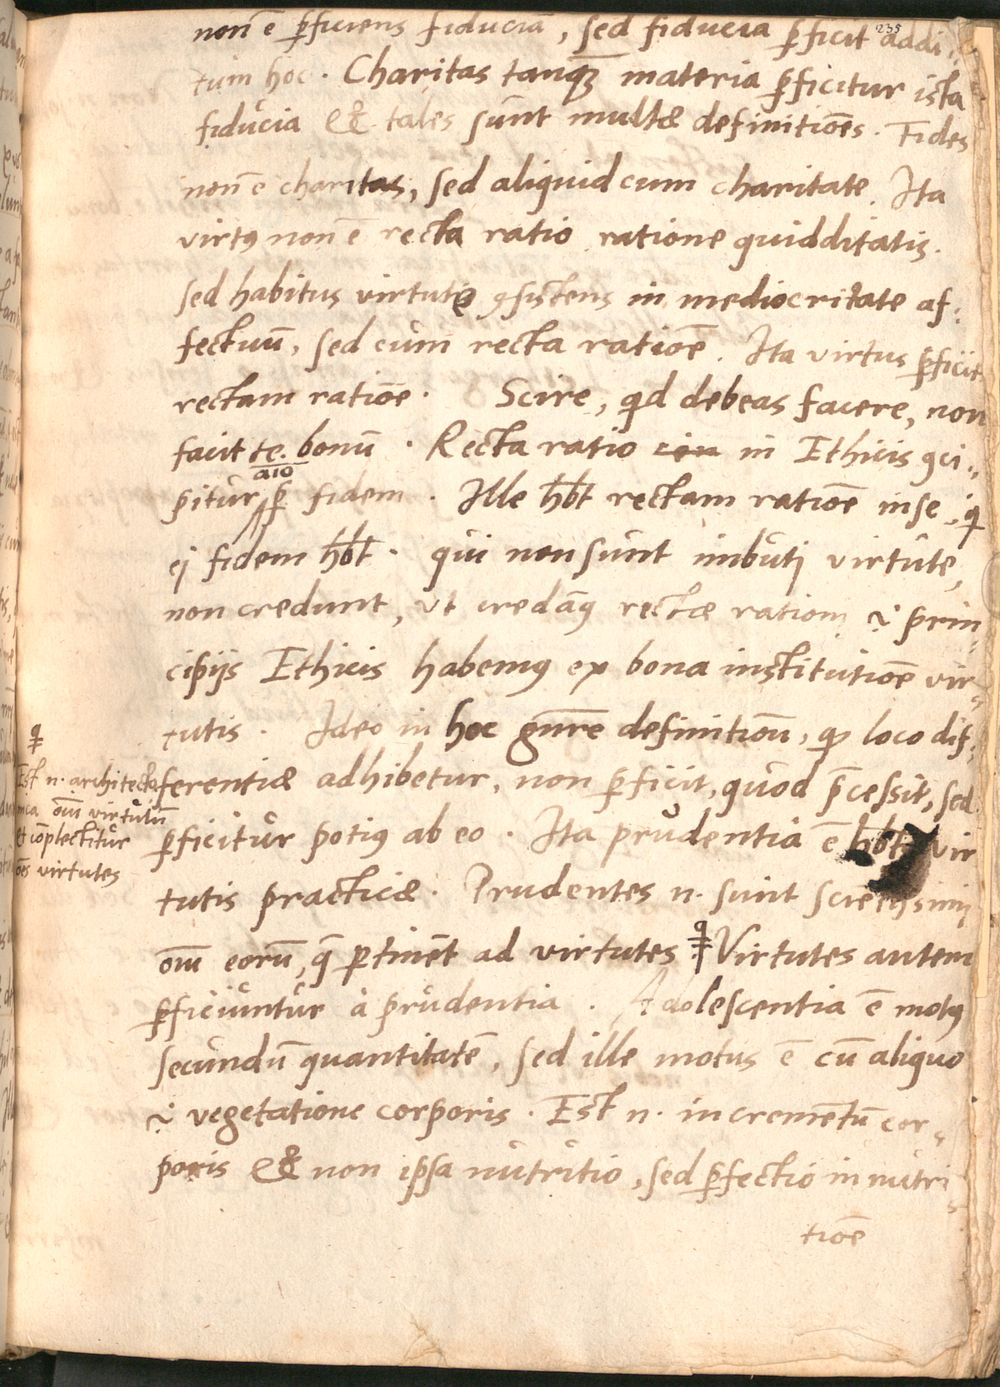 235
non ē ꝑficiens fiducia, sed fiducia ꝑficit addi-
tum hoc. Charitas tanqꝫ materia ꝑficitur ista
fiducia & tales sunt multæ definitiōes. Fides
non ē charitas, sed aliquid cum charitate. Ita
virtꝰ non ē recta ratio ratione quidditatis.
sed habitus virtutis ꝯsistens in mediocritate af-
fectuū, sed cum recta ratiōe. Ita virtus ꝑficit
rectam ratiōe. Scire, qd debeas facere, non
facit te bonū. Recta ratio in Ethicis ꝯci-
aīo
pitur ꝑ fidem. Ille hbt rectam ratiōe in se, q
ej fidem hbt. qui non sunt imbuti virtute,
non credunt, vt credāꝰ rectæ rationi prin-
cipijs Ethicis habemꝰ ex bona institutiōe vir-
tutis. Ideo in hoc gn̄re definitionū, qd loco dif-
ferentiæ adhibetur, non ꝑficit, quod p̄cessit, sed
ꝑficitur potiꝰ ab eo. Ita prudentia ē hbt vir
tutis practicæ. Prudentes n. sunt
oīm eorū, q̄ ꝑtinēt ad virtutes Virtutes autem
ꝑficiuntur à prudentia. Adolescentia ē motꝰ
secundū quantitatē, sed ille motus ē cū aliquo
vegetatione corporis. Est n. incremētū cor-
poris & non ipsa nutritio, sed ꝑfectio in nutri-
tiōe
Est n. architecto
nica oīm virtutūm
et cōplectitur
oēs virtutes